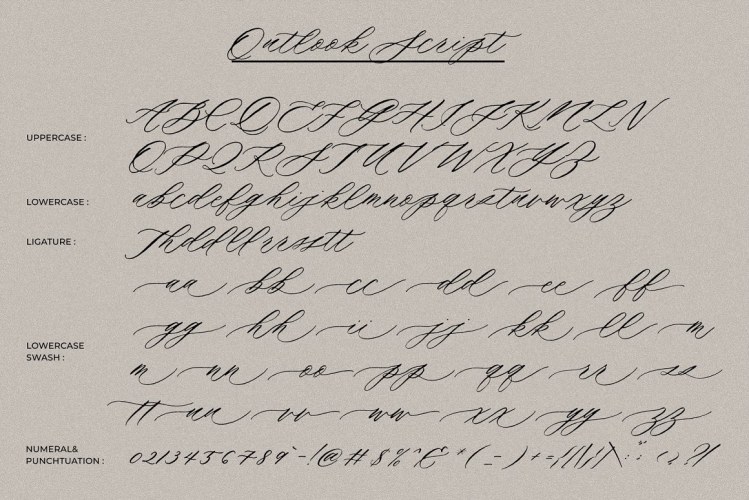 Outlook Script
UPPERCASE :
ABCDEFGHIJKMLN
OPQRSTUVWXYZ
LOWERCASE :
abcdefghijklmnopqrstuvwxyz
LIGATURE :
Thddllrrsstt
LOWERCASE
SWASH :
aa bb cc dd ee ff
gg hh ii jj kk ll m
m nn oo pp qq rr ss
tt uu vv ww xx yy zz
NUMERAL&
PUNCHTUATION :
0213456789